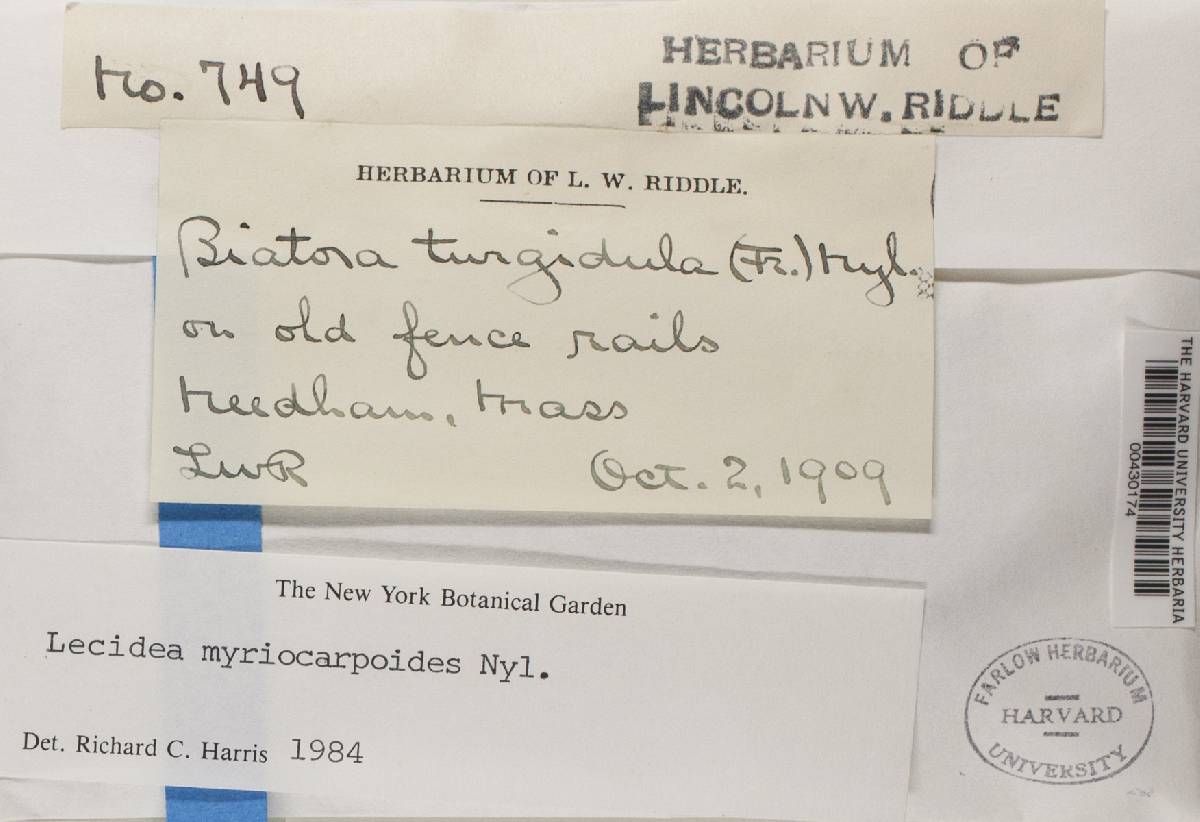 No. 749
HERBARIUM OF
LINCOLN W. RIDDLE
HERBARIUM OF L. W. RIDDLE.
Biatora turgidula (Fr.) Nyl.
on old fence rails
Needham, Mass
LWR Oct. 2, 1909
THE HARVARD UNIVERSITY HERBARIA
00430174
The New York Botanical Garden
Lecidea myriocarpoides Nyl.
Det. Richard C. Harris 1984
FARLOW HERBARIUM
HARVARD
UNIVERSITY